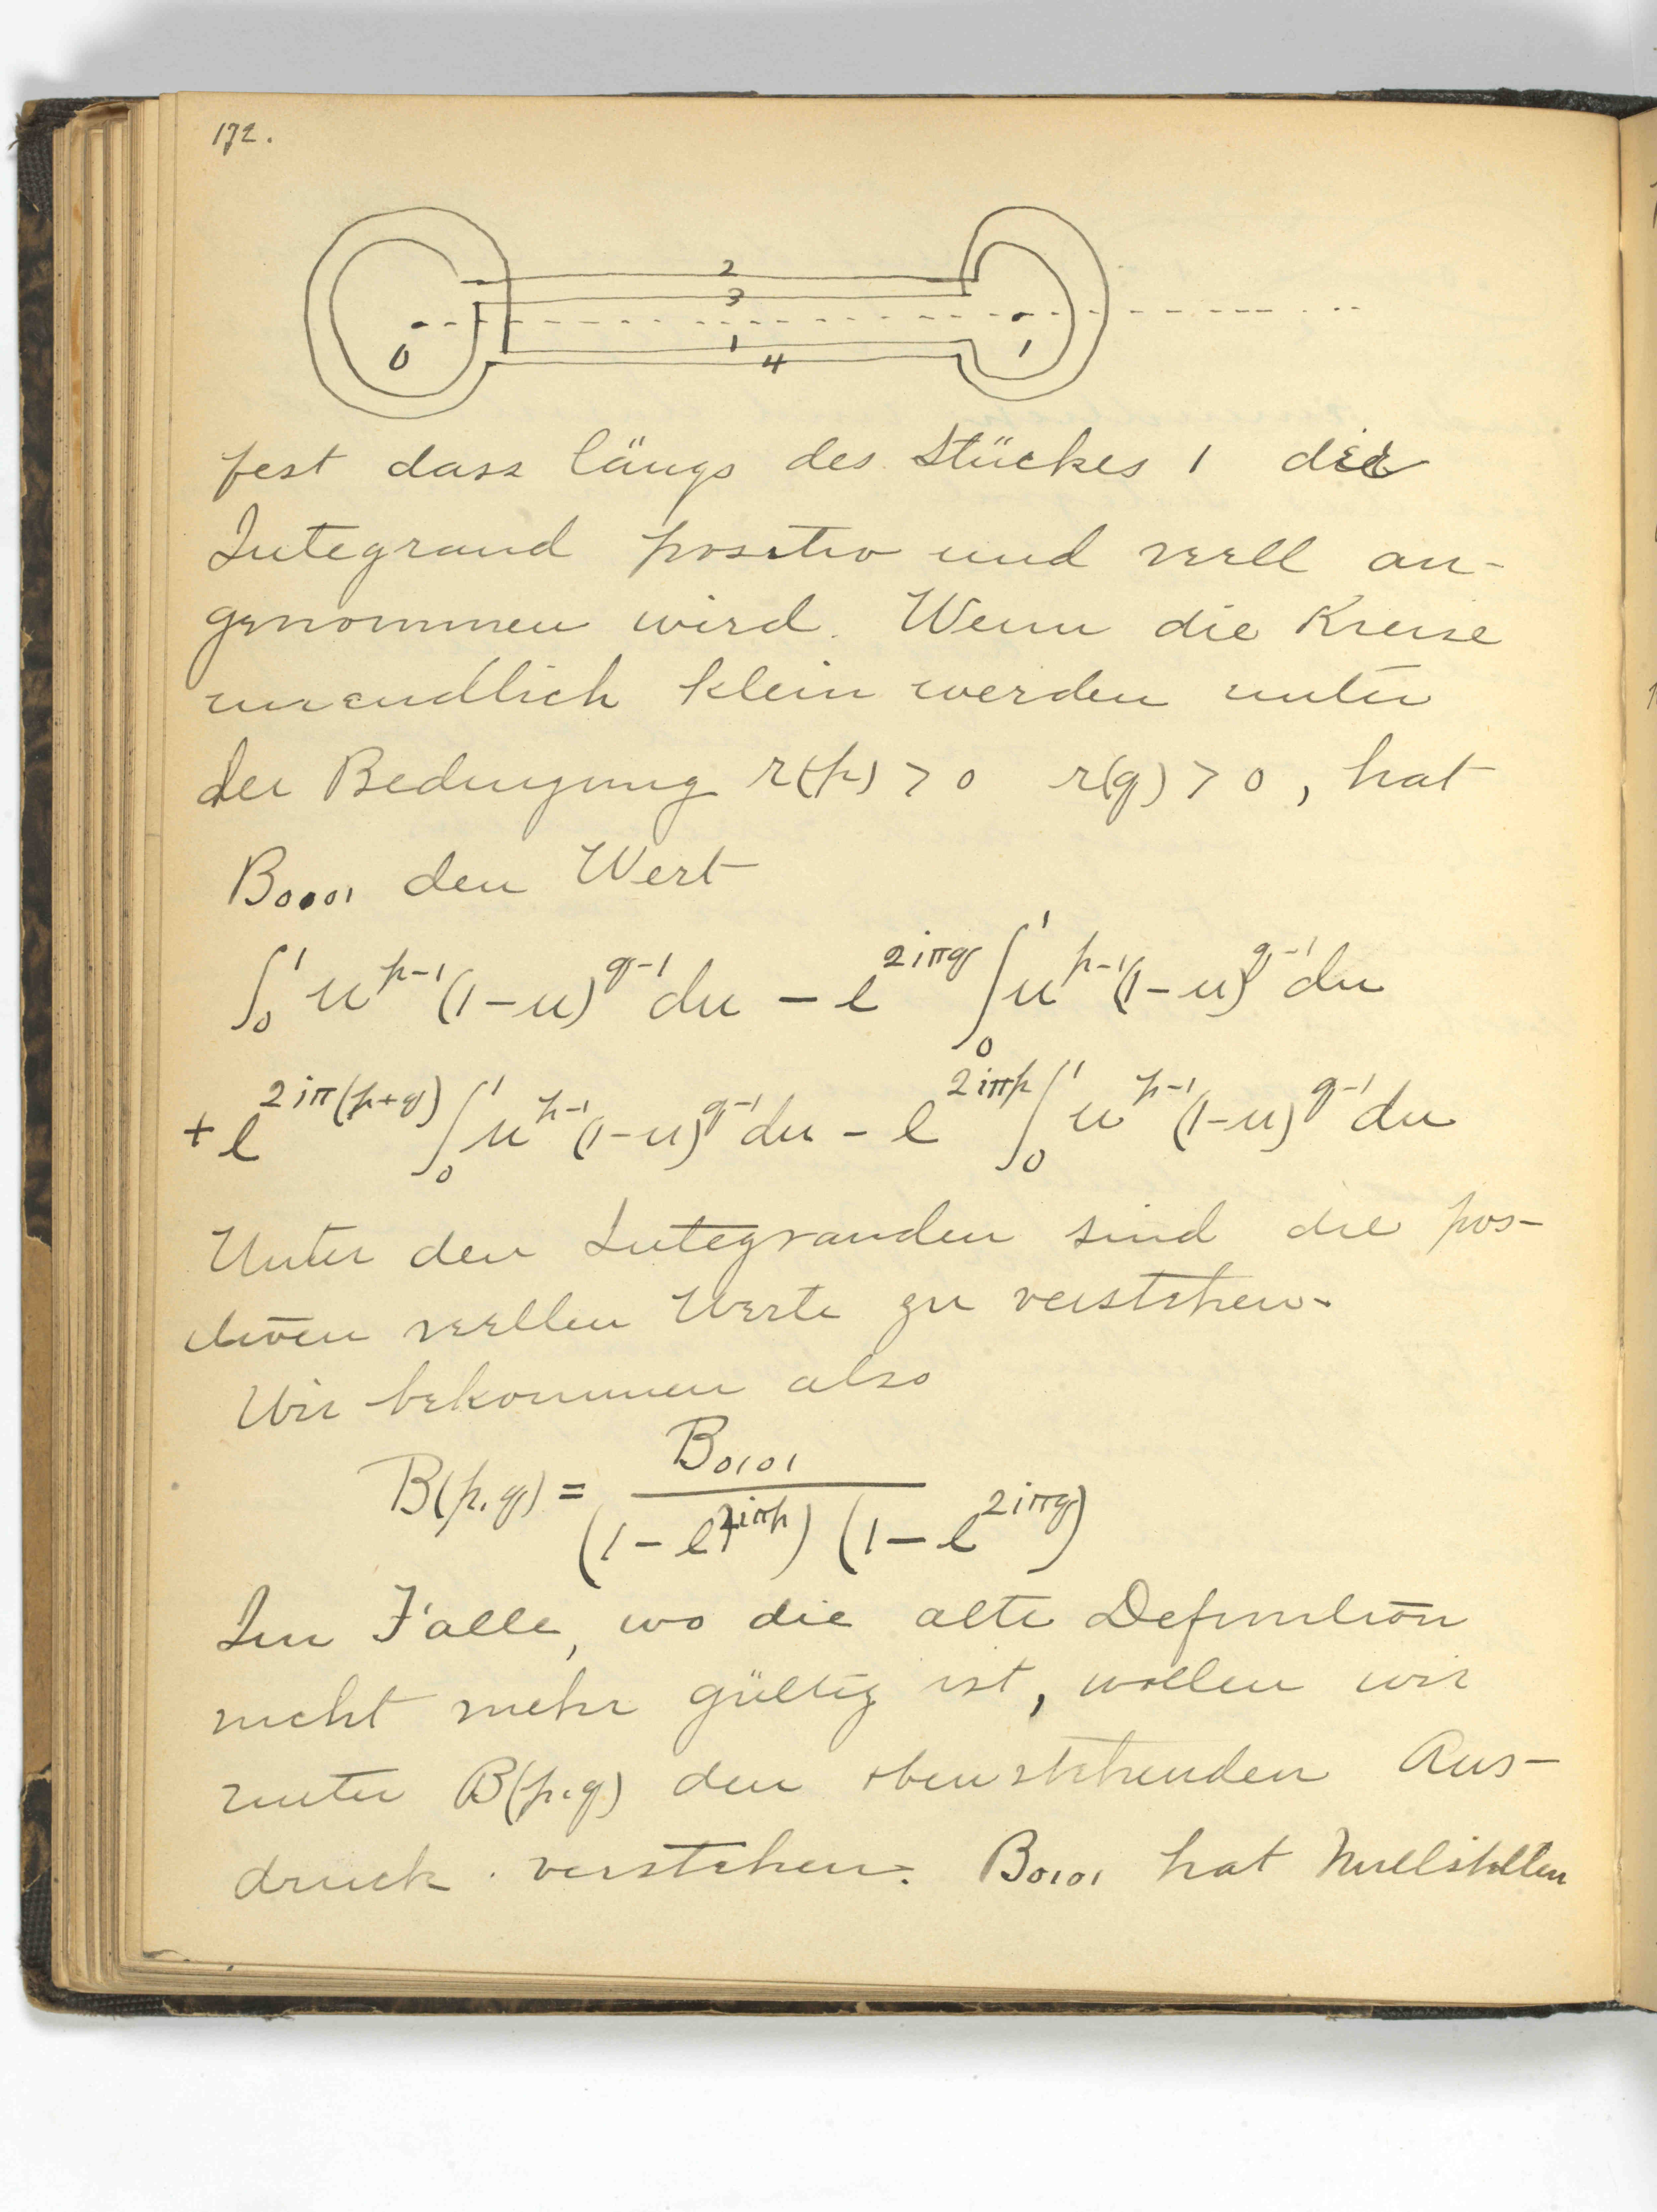 172.
2
3
1
4
0
1
fest dass längs des Stückes 1 die
Integrand positiv und reell an-
genommen wird. Wenn die Kreise
unendlich klein werden unter
der Bedingung r(p) > 0 r(q) > 0, hat
B₀₁₀₁ den Wert
∫₀¹ u^{p-1} (1-u)^{q-1} du - e^{2iπq} ∫₀¹ u^{p-1} (1-u)^{q-1} du
+ e^{2iπ(p+q)} ∫₀¹ u^{p-1} (1-u)^{q-1} du - e^{2iπp} ∫₀¹ u^{p-1} (1-u)^{q-1} du
Unter den Integranden sind die pos-
itiven reellen Werte zu verstehen.
Wir bekommen also
B(p,q) = B₀₁₀₁ / (1 - e^{2iπp}) (1 - e^{2iπq})
Im Falle, wo die alte Definition
nicht mehr gültig ist, wollen wir
unter B(p.q) den obenstehenden Aus-
druck verstehen. B₀₁₀₁ hat Nullstellen